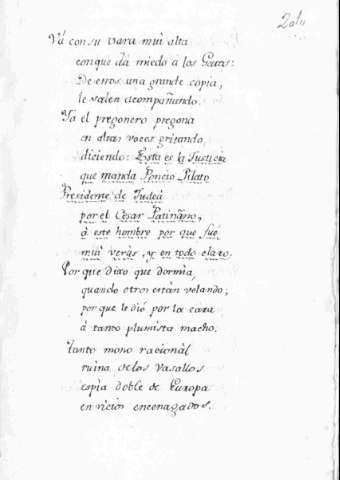 Vá con su vara mui alta
con que dá miedo a los Gatos:
De otros una grande copia,
le salen acompañando.
Ya el pregonero pregona
en altas voces gritando,
diciendo: Esta es la Justicia
que manda Poncio Pilato
Presidente de Judea
por el Cesar
á este hombre por que fue
mui veràs, y en todo claro.
Por que dixo que dormia,
quando otros están volando;
por que le dió por la cara
á tanto plumista macho.
Tanto mono racionàl
ruina de los vasallos
copia doble de Europa
en vicios encenagados.